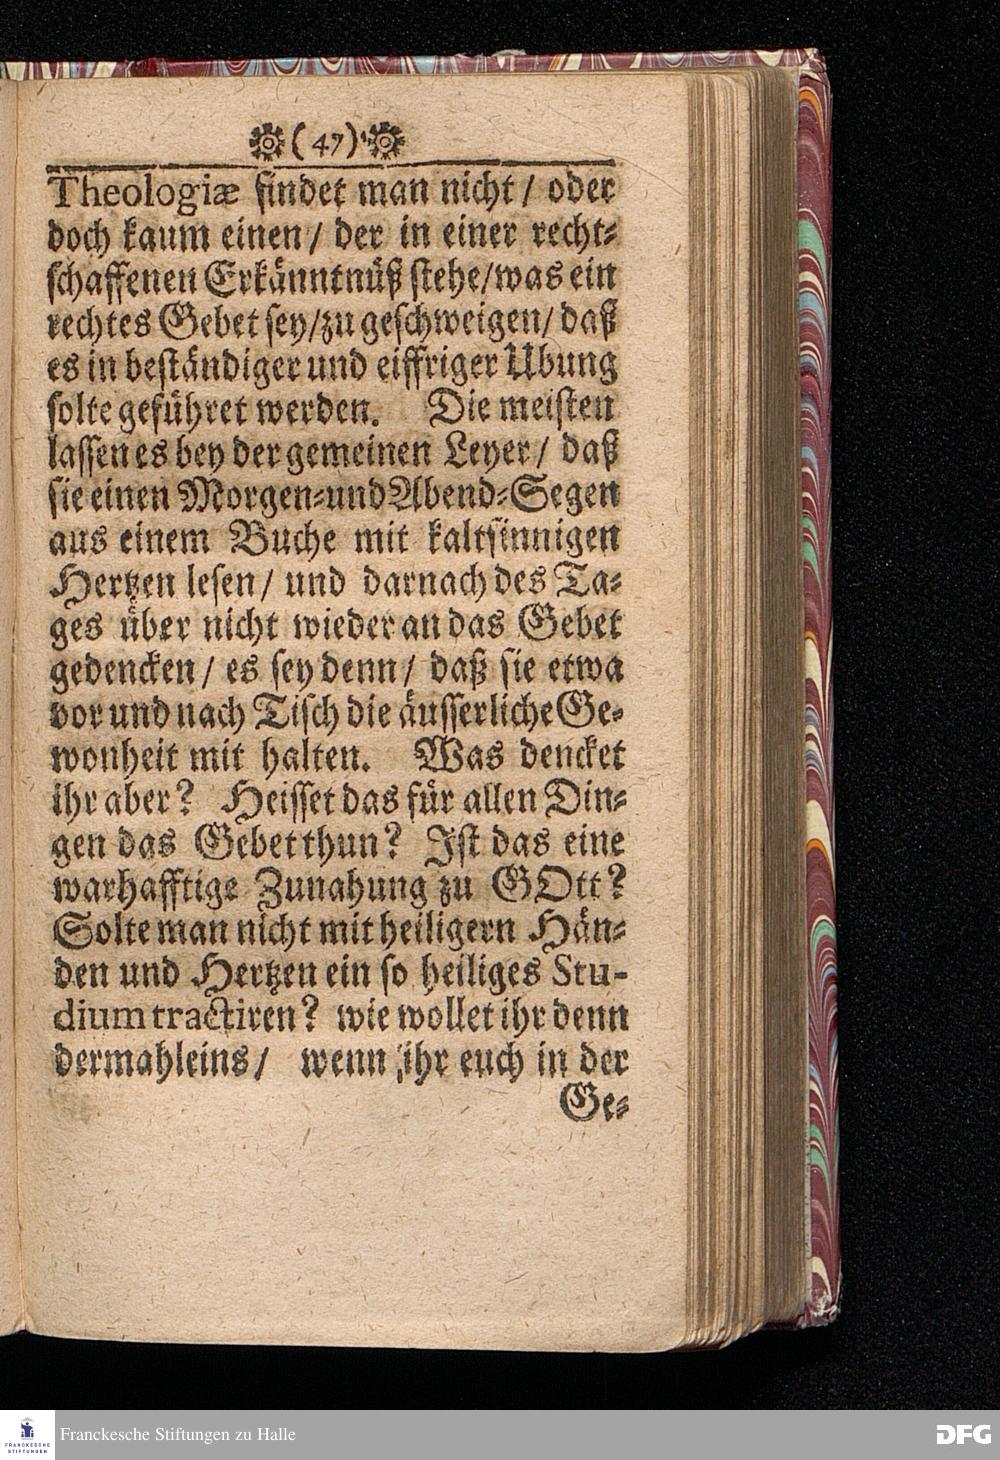 (47)
Theologiæ findet man nicht / oder
doch kaum einen / der in einer recht-
schaffenen Erkänntnüß stehe/was ein
rechtes Gebet sey/zu geschweigen/ daß
es in beständiger und eiffriger Ubung
solte geführet werden. Die meisten
lassen es bey der gemeinen Leyer / daß
sie einen Morgen-und Abend-Segen
aus einem Buche mit kaltsinnigen
Hertzen lesen / und darnach des Ta-
ges über nicht wieder an das Gebet
gedencken / es sey denn / daß sie etwa
vor und nach Tisch die äusserliche Ge-
wonheit mit halten. Was dencket
ihr aber? Heisset das für allen Din-
gen das Gebet thun? Ist das eine
warhafftige Zunahung zu GOtt?
Solte man nicht mit heiligern Hän-
den und Hertzen ein so heiliges Stu-
dium tractiren? wie wollet ihr denn
dermahleins / wenn ihr euch in der
Ge-
FRANCKESCHE
STIFTUNGEN
Franckesche Stiftungen zu Halle
DFG